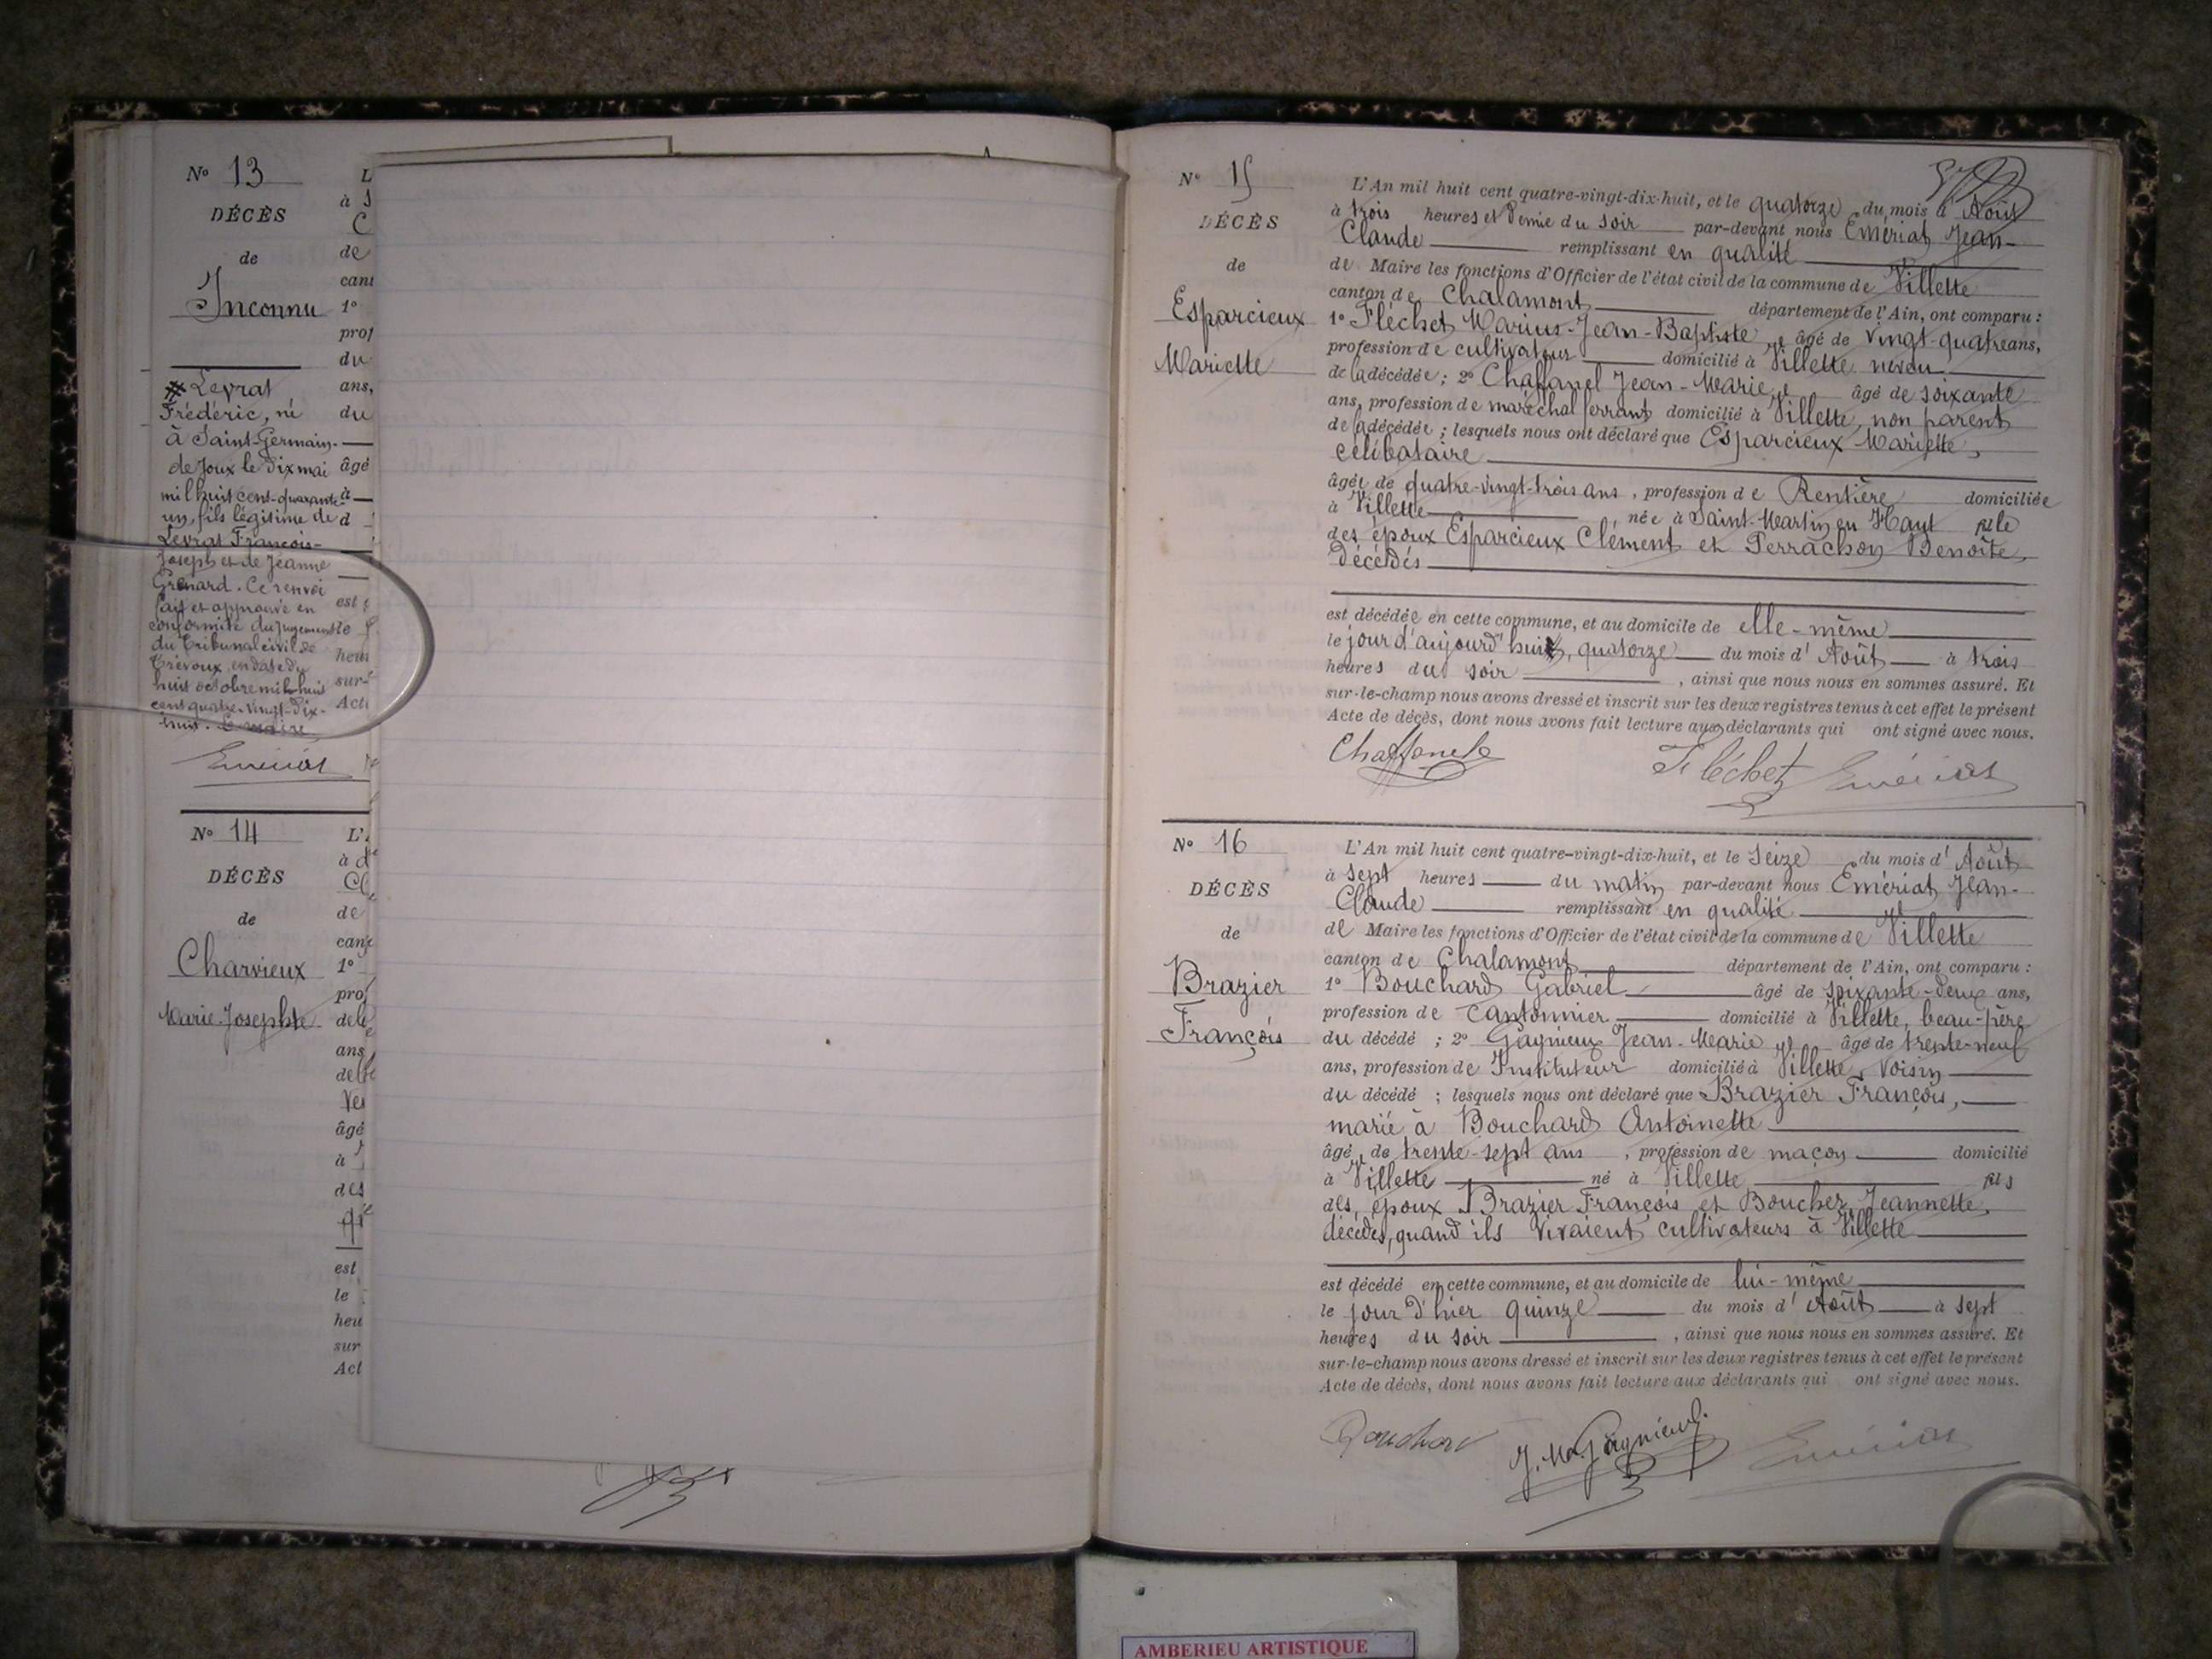 N° 13
DÉCÈS
de
Inconnu
# Levrat
Frédéric, né
à Saint-Germain-
de Joux le dix mai
mil huit cent-quarante-
un, fils légitime de
Levrat François-
Joseph et de Jeanne
Grenard. Ce renvoi
fait et approuvé en
conformité du jugement
du Tribunal civil de
Trévoux, en date du
huit octobre mil huit
cent quatre-vingt-dix-
huit. Le maire
Emériat
L
à
C
de
can
1°
prof
du
ans,
du
âgé
à
d
est
le
heu
sur-
Act
N° 14
DÉCÈS
de
Charvieux
Marie-Josephte
L'
à d
Cl
de
can
1°
pro
de
ans
de
Ve
âgé
à
des
est
le
heu
sur
Act
N° 15
DÉCÈS
de
Esparcieux
Mariette
L'An mil huit cent quatre-vingt-dix-huit, et le quatorze du mois d'Août
à trois heures et demie du soir par-devant nous Emériat Jean-
Claude remplissant en qualité
de Maire les fonctions d'Officier de l'état civil de la commune de Villette
canton de Chalamont département de l'Ain, ont comparu :
1° Fléchet Marius-Jean-Baptiste âgé de vingt-quatre ans,
profession de cultivateur domicilié à Villette neveu
de la décédée ; 2° Chaffanel Jean-Marie âgé de soixante
ans, profession de maréchal ferrant domicilié à Villette, non parent
de la décédée ; lesquels nous ont déclaré que Esparcieux Mariette,
célibataire
âgée de quatre-vingt-trois ans, profession de Rentière domiciliée
à Villette née à Saint-Martin en Haut fille
des époux Esparcieux Clément et Perrachon Benoîte,
décédés
est décédée en cette commune, et au domicile de elle-même
le jour d'aujourd'hui, quatorze du mois d'Août à trois
heures du soir, ainsi que nous nous en sommes assuré. Et
sur-le-champ nous avons dressé et inscrit sur les deux registres tenus à cet effet le présent
Acte de décès, dont nous avons fait lecture aux déclarants qui ont signé avec nous.
Chaffanel Fléchet Emériat
N° 16
DÉCÈS
de
Brazier
François
L'An mil huit cent quatre-vingt-dix-huit, et le Seize du mois d'Août
à sept heures du matin par-devant nous Emériat Jean-
Claude remplissant en qualité
de Maire les fonctions d'Officier de l'état civil de la commune de Villette
canton de Chalamont département de l'Ain, ont comparu :
1° Bouchard Gabriel âgé de soixante-deux ans,
profession de Cantonnier domicilié à Villette, beau-père
du décédé ; 2° Gagnieux Jean-Marie âgé de trente-neuf
ans, profession de Instituteur domicilié à Villette, voisin
du décédé ; lesquels nous ont déclaré que Brazier François,
marié à Bouchard Antoinette
âgé de trente-sept ans, profession de maçon domicilié
à Villette né à Villette fils
des époux Brazier François et Boucher Jeannette,
décédés, quand ils vivaient cultivateurs à Villette
est décédé en cette commune, et au domicile de lui-même
le jour d'hier quinze du mois d'Août à sept
heures du soir, ainsi que nous nous en sommes assuré. Et
sur-le-champ nous avons dressé et inscrit sur les deux registres tenus à cet effet le présent
Acte de décès, dont nous avons fait lecture aux déclarants qui ont signé avec nous.
Bouchard J. Ma Gagnieux Emériat
AMBERIEU ARTISTIQUE